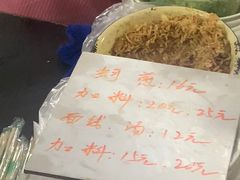 蚵煎:16元
加料:20元.25元
面线湯:12元
加料:15元.20元